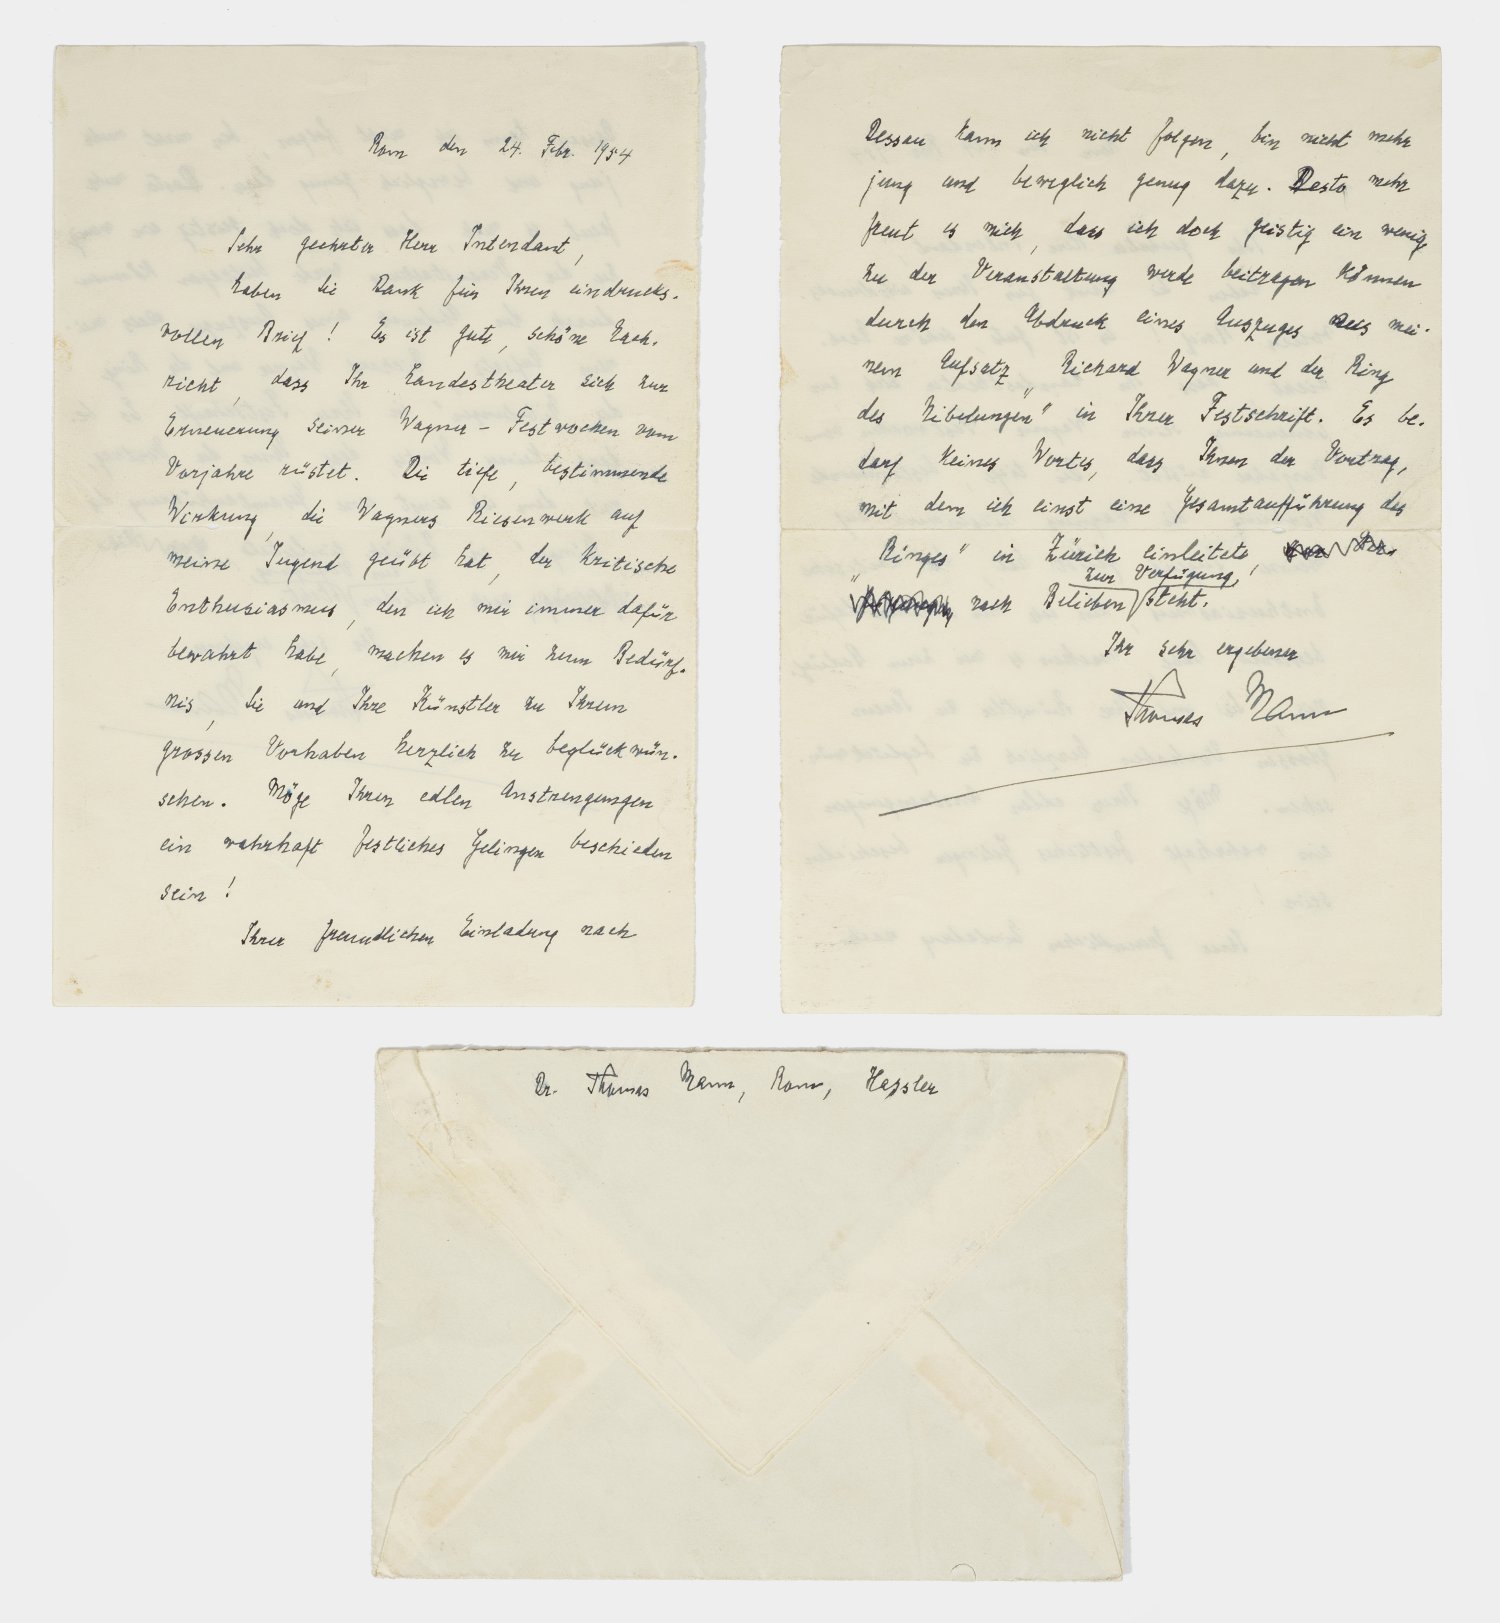 Rom den 24. Febr. 1954
Sehr geehrter Herr Intendant,
haben Sie Dank für Ihren eindrucks-
vollen Brief! Es ist gute, schöne Nach-
richt, dass Ihr Landestheater sich zur
Erneuerung seiner Wagner - Festwochen vom
Vorjahre rüstet. Die tiefe, bestimmende
Wirkung, die Wagners Riesenwerk auf
meine Jugend geübt hat, der kritische
Enthusiasmus, den ich mir immer dafür
bewahrt habe, machen es mir zum Bedürf-
nis, Sie und Ihre Künstler zu Ihrem
grossen Vorhaben herzlich zu beglückwün-
schen. Möge Ihren edlen Anstrengungen
ein wahrhaft festliches Gelingen beschieden
sein!
Ihrer freundlichen Einladung nach
Dessau kann ich nicht folgen, bin nicht mehr
jung und beweglich genug dazu. Desto mehr
freut es mich, dass ich doch geistig ein wenig
zu der Veranstaltung werde beitragen können
durch den Abdruck eines Auszuges aus mei-
nem Aufsatz „Richard Wagner und der Ring
des Nibelungen“ in Ihrer Festschrift. Es be-
darf keines Wortes, dass Ihnen der Vortrag,
mit dem ich einst eine Gesamtaufführung des
„Ringes“ in Zürich einleitete,
zur Verfügung
nach Belieben steht.
Ihr sehr ergebener
Thomas Mann
Dr. Thomas Mann, Rom, Hassler